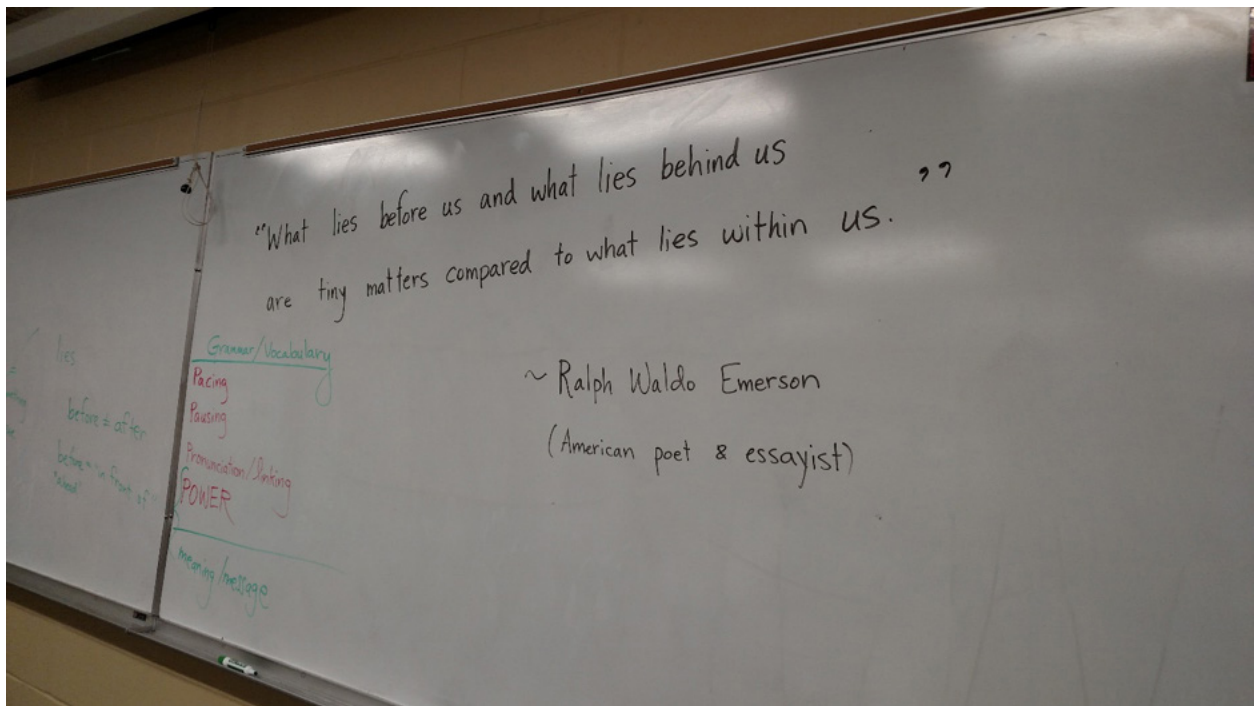 "What lies before us and what lies behind us
are tiny matters compared to what lies within us."
~ Ralph Waldo Emerson
(American poet & essayist)
Grammar/Vocabulary
Pacing
Pausing
Pronunciation/linking
POWER
meaning/message
lies
before ≠ after
before = "in front of"
"ahead"